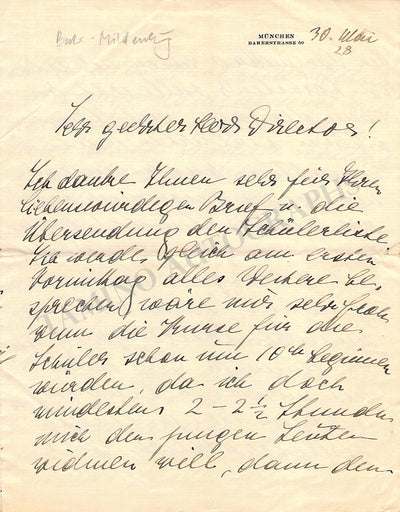 Bahr-Mildenburg
MÜNCHEN
BARERSTRASSE 50
30. Mai
23
Sehr geehrter Herr Director!
Ich danke Ihnen sehr für Ihren
liebenswürdigen Brief u. die
Übersendung der Schülerliste.
Ich werde gleich am ersten
Vormittag alles Weitere be-
sprechen, wäre nur sehr froh
wenn die Kurse für die
Schüler schon um 10 Uhr beginnen
würden, da ich doch
mindestens 2 - 2 1/2 Stunden
mich den jungen Leuten
widmen will, dann den